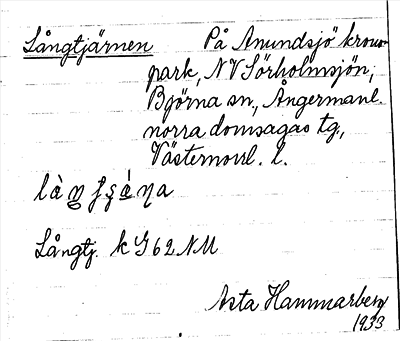 Långtjärnen På Anundsjö krono-
park, NV Sörholmsjön,
Björna sn., Ångermanl.
norra domsagas tg.,
Västernorrl. l.
Långtj. k G 62 NM
Asta Hammarberg
1933